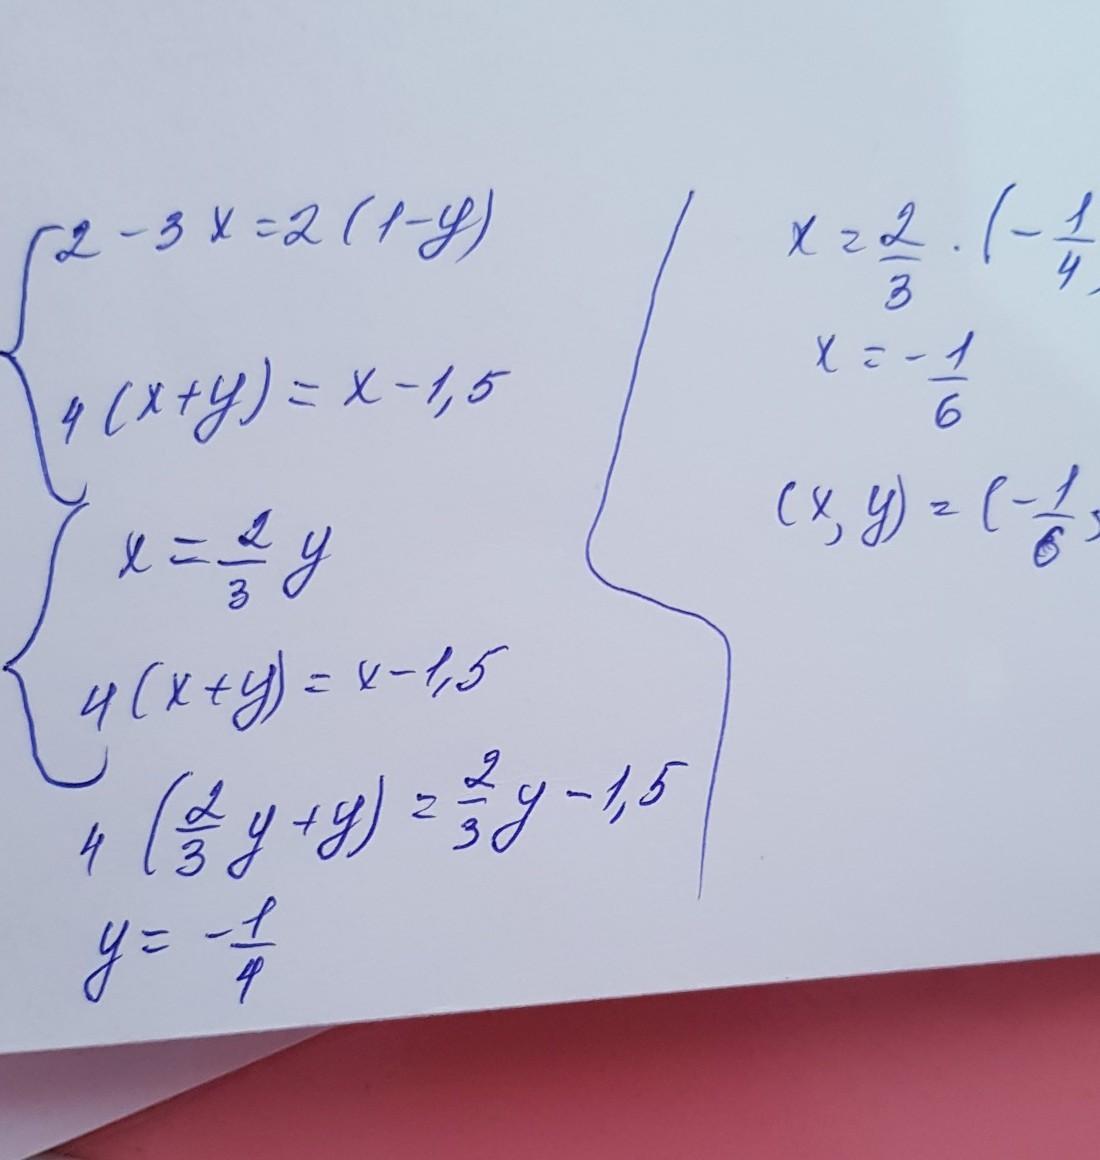 2 - 3x = 2(1-y)
4(x+y) = x - 1,5
x = 2/3 y
4(x+y) = x - 1,5
4(2/3 y + y) = 2/3 y - 1,5
y = -1/4
x = 2/3 · (-1/4)
x = -1/6
(x, y) = (-1/6;